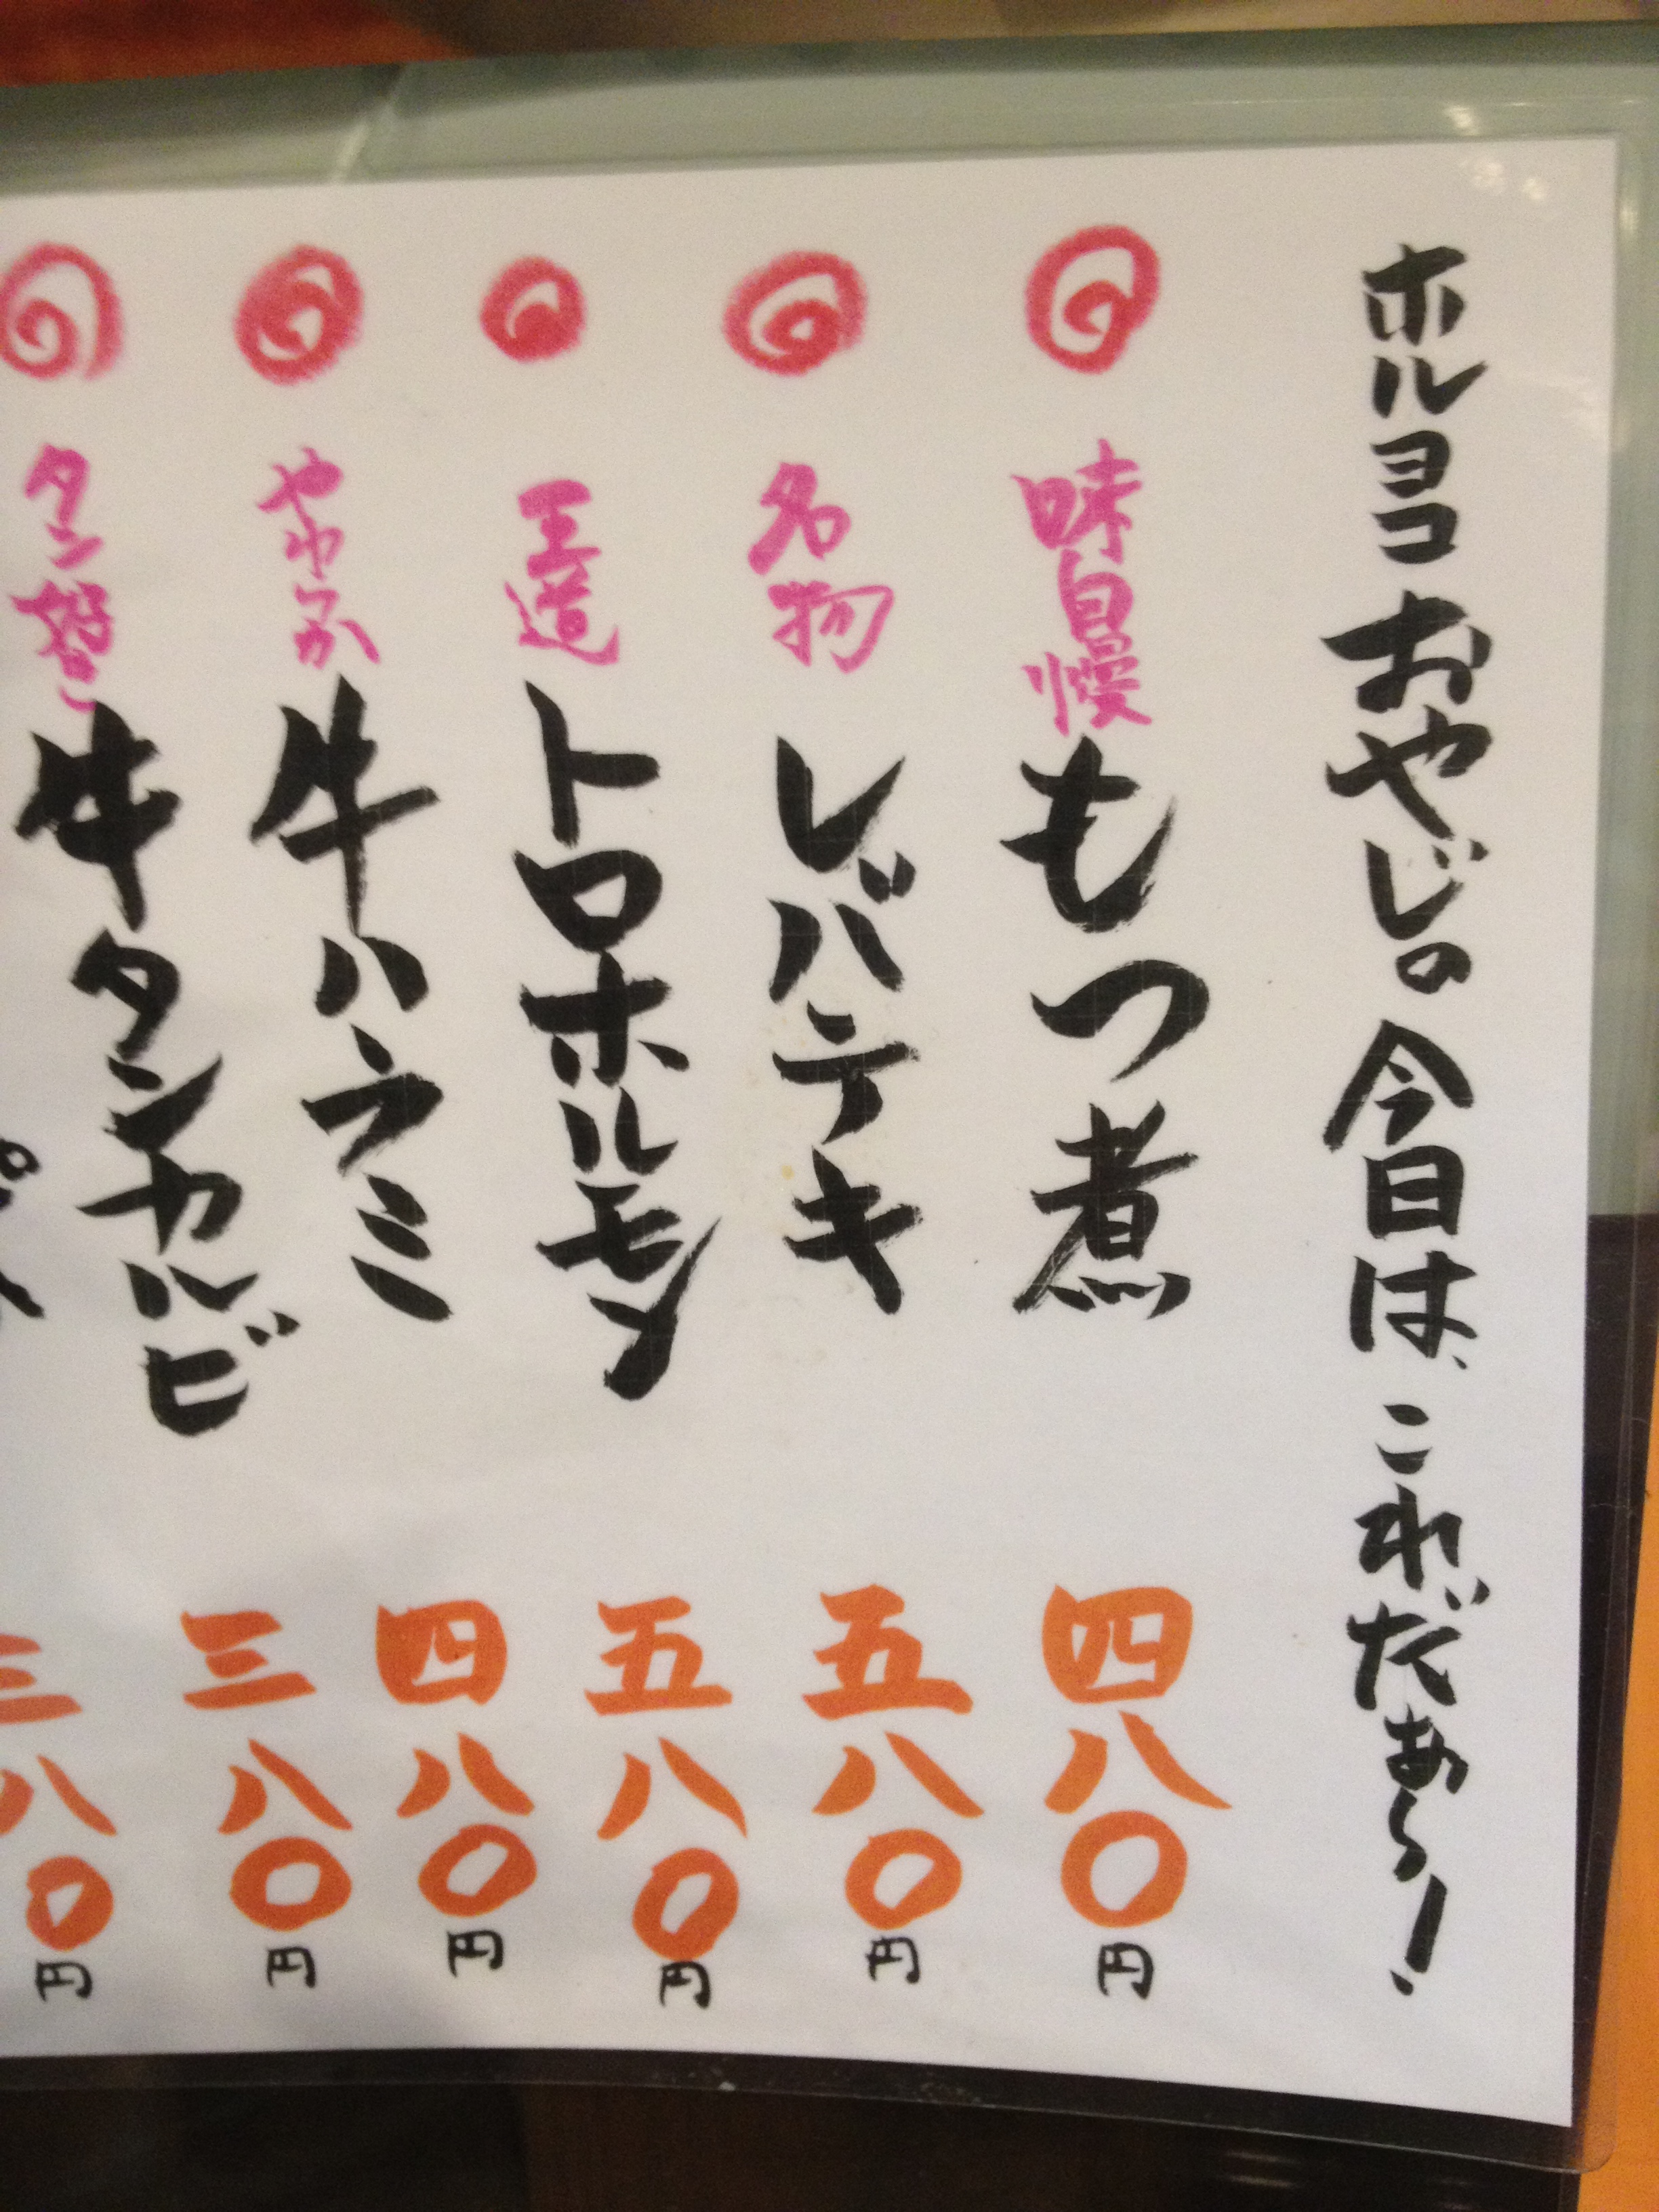 ホルヨコおやじの今日は、これだぁ〜!
味自慢 もつ煮 四八〇円
名物 レバテキ 五八〇円
王道 トロホルモン 五八〇円
やわらか 牛ハラミ 四八〇円
タン好き 牛タンカルビ 三八〇円
三八〇円